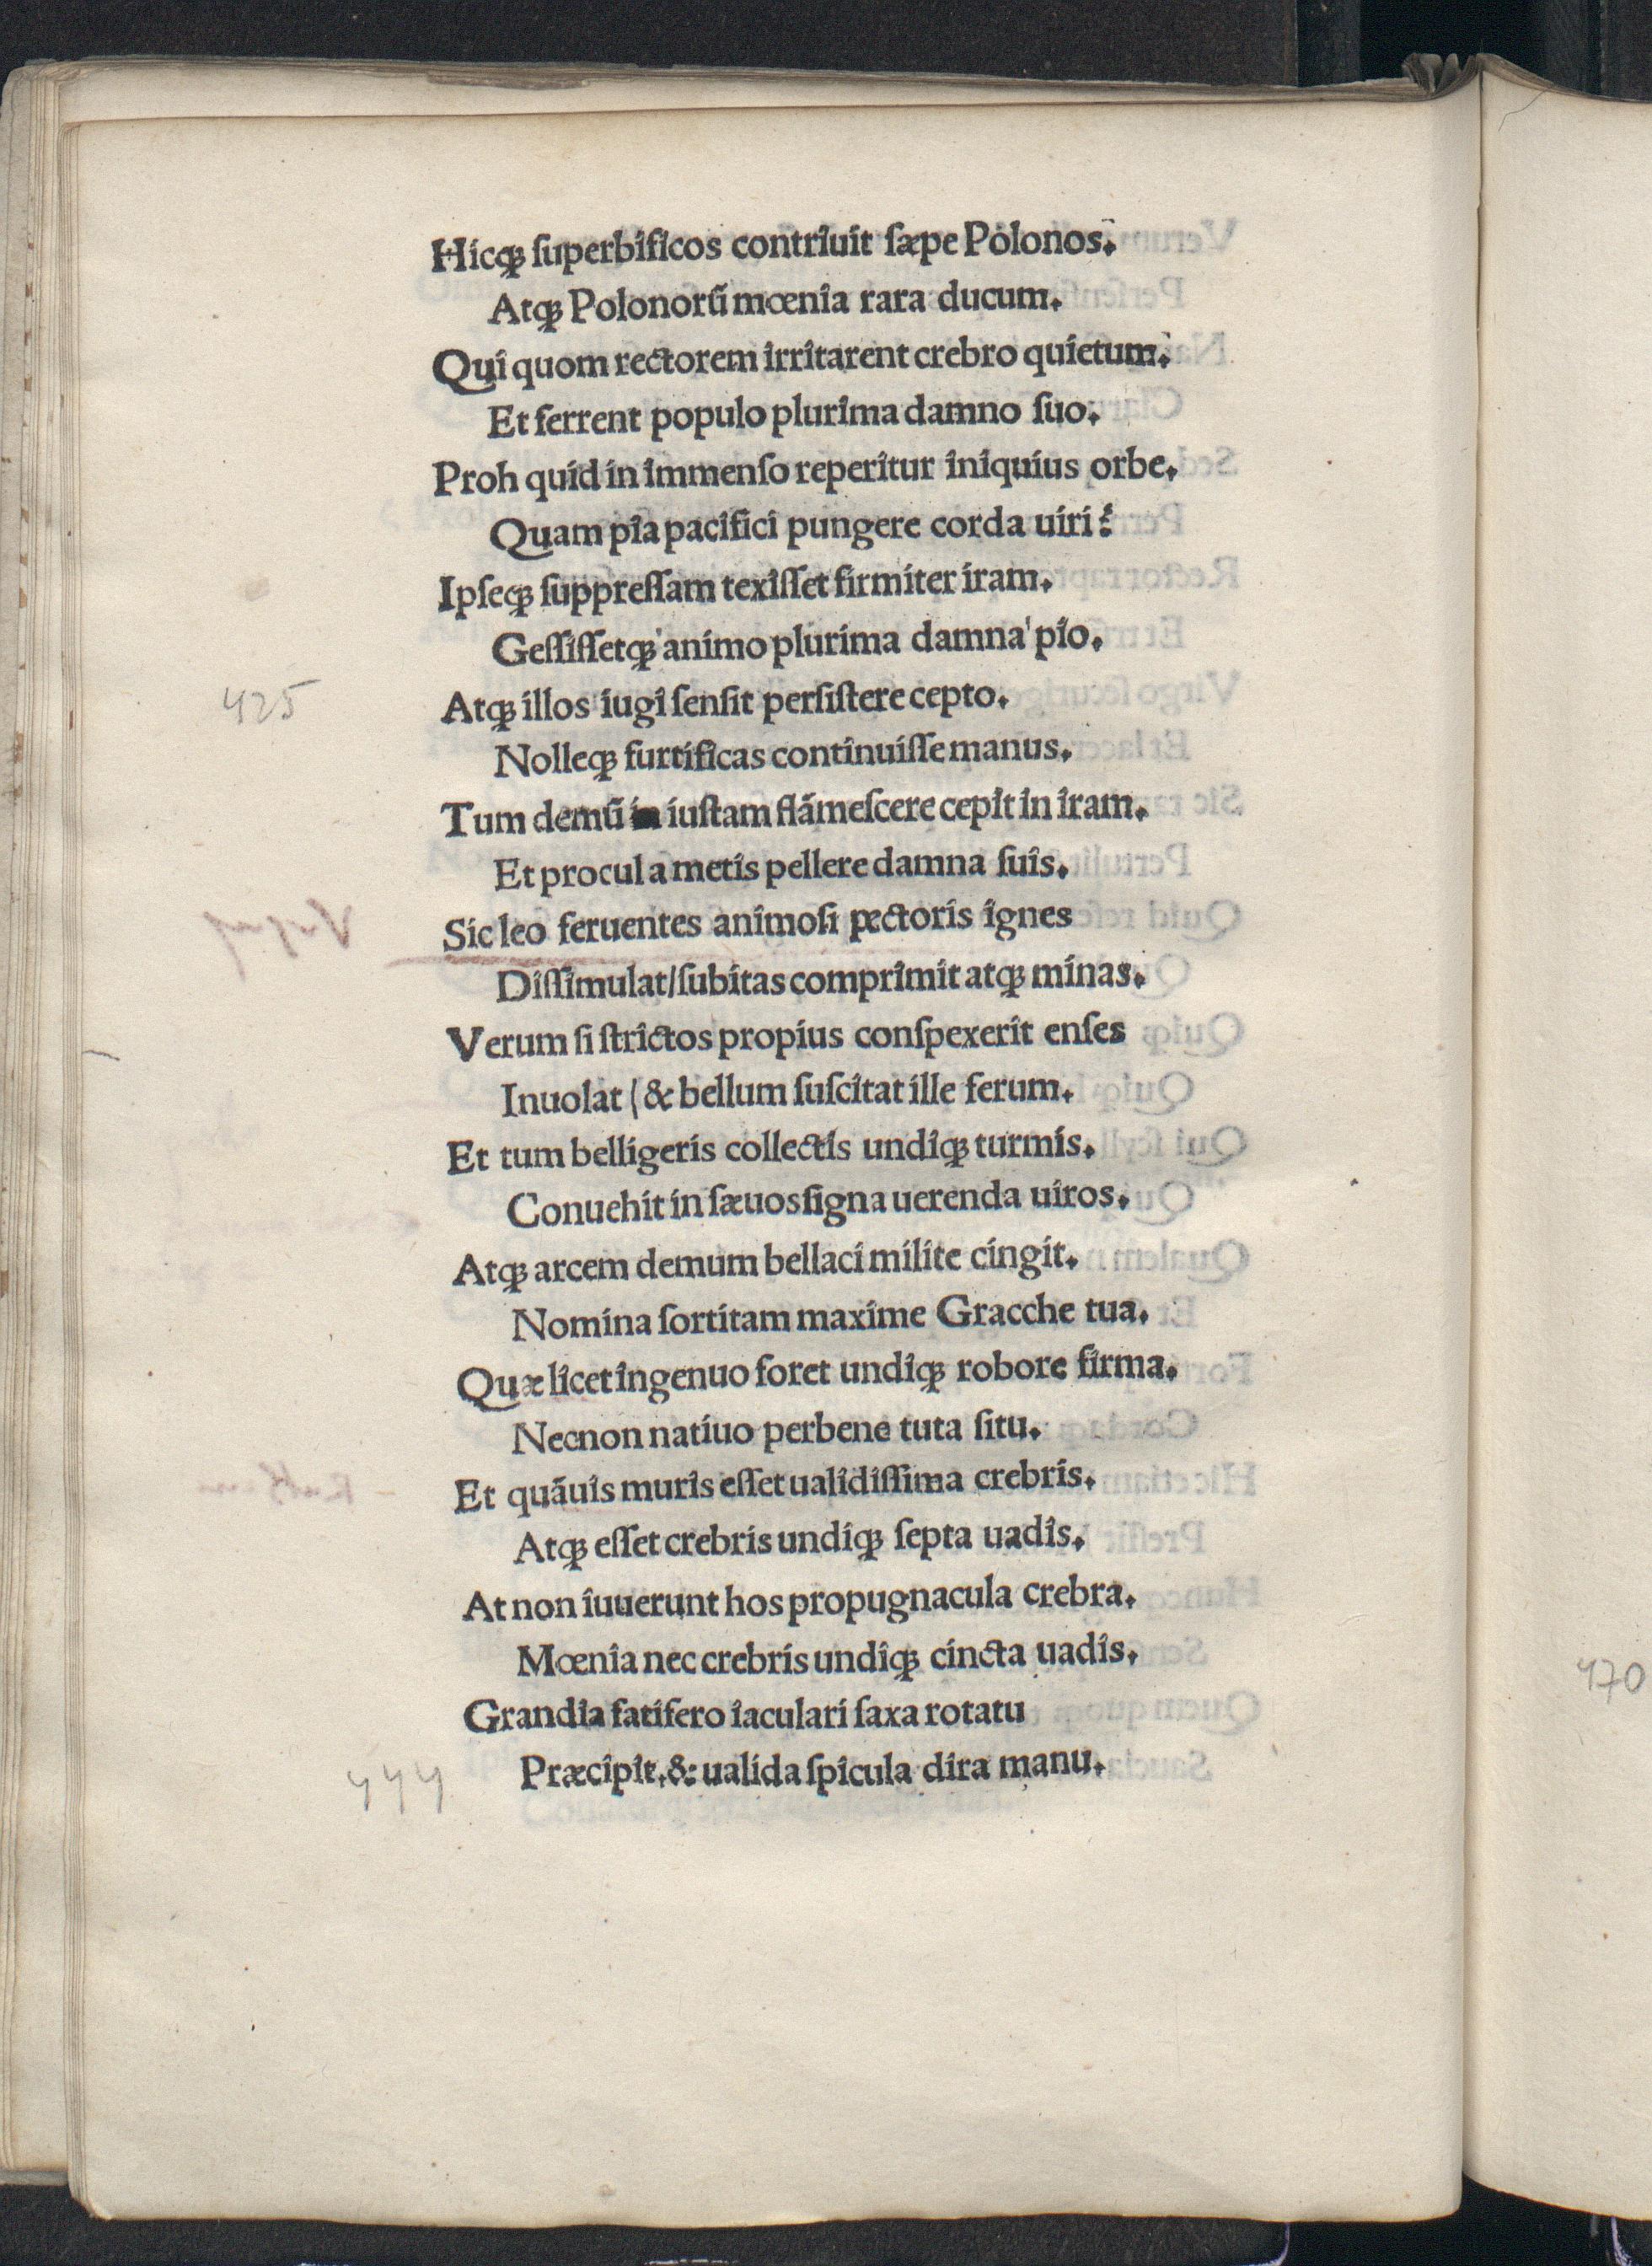 Hicqꝫ ſuperbificos contriuit ſæpe Polonos.
Atqꝫ Polonorũ mœnia rara ducum.
Qui quom rectorem irritarent crebro quietum.
Et ferrent populo plurima damno ſuo.
Proh quid in immenſo reperitur iniquius orbe.
Quam pia pacifici pungere corda uiri?
Ipſeqꝫ ſuppreſſam texiſſet firmiter iram.
Geſſiſſetqꝫ animo plurima damna pio.
425
Atqꝫ illos iugi ſenſit perſiſtere cepto.
Nolleqꝫ furtificas continuiſſe manus.
Tum demũ in iuſtam flãmeſcere cepit in iram.
Et procul a metis pellere damna ſuis.
Sic leo feruentes animoſi pectoris ignes
Diſſimulat/ſubitas comprimit atqꝫ minas.
Verum ſi ſtrictos propius conſpexerit enſes
Inuolat/& bellum ſuſcitat ille ferum.
Et tum belligeris collectis undiqꝫ turmis.
Conuehit in ſæuos ſigna uerenda uiros.
Atqꝫ arcem demum bellaci milite cingit.
Nomina ſortitam maxime Gracche tua.
Quæ licet ingenuo foret undiqꝫ robore firma.
Necnon natiuo perbene tuta ſitu.
Et quãuis muris eſſet ualidiſſima crebris.
Atqꝫ eſſet crebris undiqꝫ ſepta uadis.
At non iuuerunt hos propugnacula crebra.
Mœnia nec crebris undiqꝫ cincta uadis.
Grandia fatifero iaculari ſaxa rotatu
444
Præcipit.& ualida ſpicula dira manu.
470